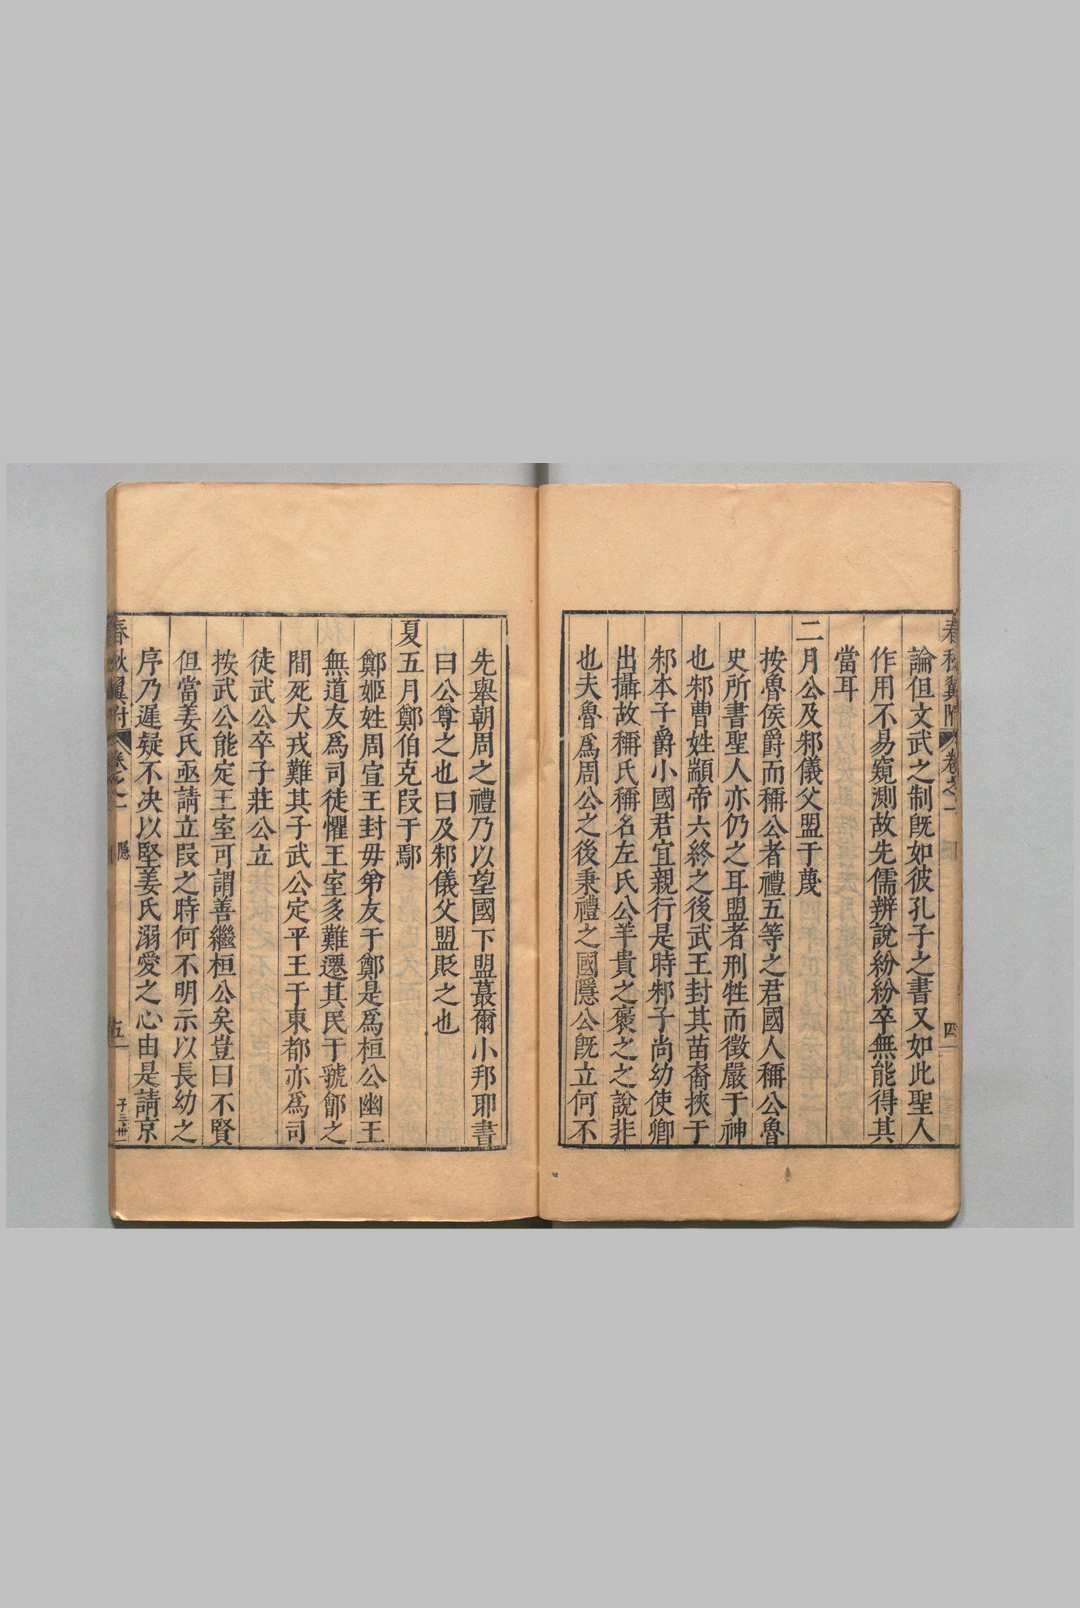 春秋翼附 卷之一 四
論但文武之制旣如彼孔子之書又如此聖人
作用不易窺測故先儒辨說紛紛卒無能得其
當耳
二月公及邾儀父盟于蔑
按魯侯爵而稱公者禮五等之君國人稱公魯
史所書聖人亦仍之耳盟者刑牲而徵嚴于神
也邾曹姓顓帝六終之後武王封其苗裔挾于
邾本子爵小國君宜親行是時邾子尚幼使卿
出攝故稱氏稱名左氏公羊貴之褒之之說非
也夫魯爲周公之後秉禮之國隱公旣立何不
先舉朝周之禮乃以望國下盟蕞爾小邦耶書
曰公尊之也曰及邾儀父盟貶之也
夏五月鄭伯克段于鄢
鄭姬姓周宣王封毋弟友于鄭是爲桓公幽王
無道友爲司徒懼王室多難遷其民于虢鄶之
間死犬戎難其子武公定平王于東都亦爲司
徒武公卒子莊公立
按武公能定王室可謂善繼桓公矣豈曰不賢
但當姜氏亟請立段之時何不明示以長幼之
序乃遲疑不决以堅姜氏溺愛之心由是請京
春秋翼附 卷之一 隱 五 子三卅